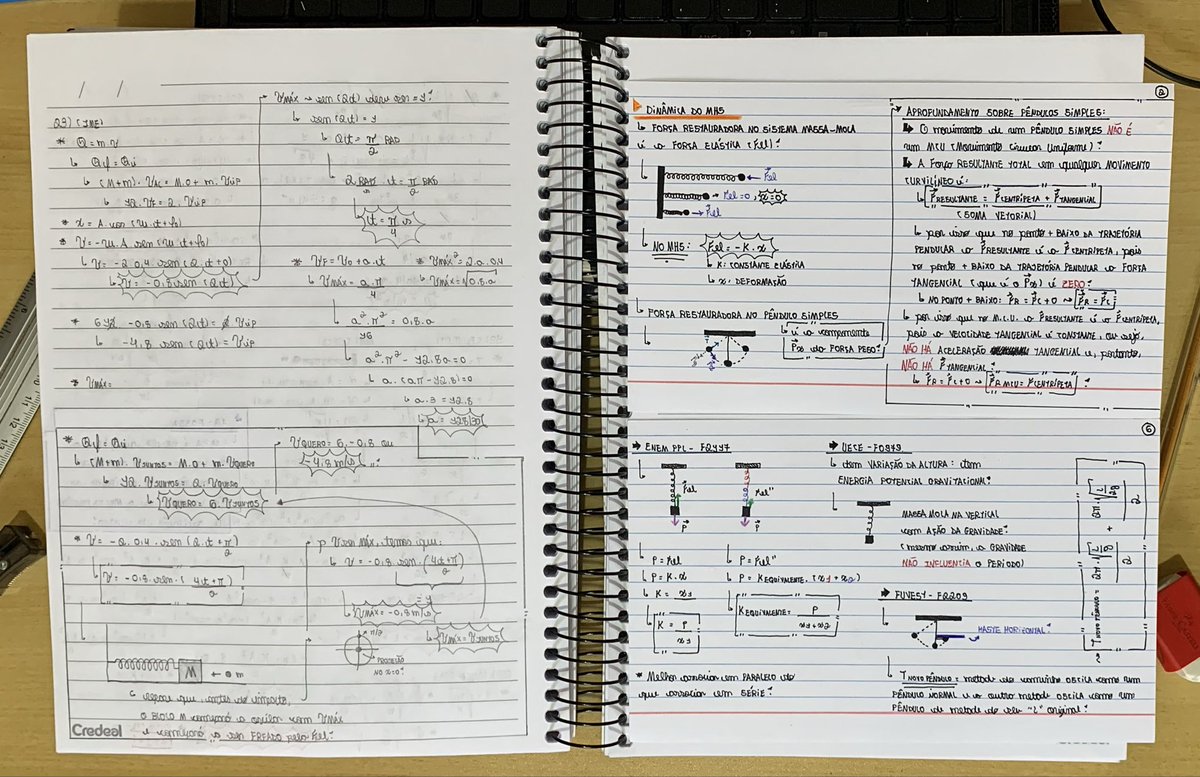 / /
23) (IME)
* Q = m.v
↳ Qf = Qi
↳ (M+m). V
* x = A cos (ω t + f₀)
* V = -ω. A sen (ω t + f₀)
↳ V = -2.0,4 sen (2.t+0)
↳ V = -0,8 sen (2t)
-0,8 sen (2t) =
↳ -4,8 sen (2t) =
* Vmáx =
Vmáx → sen (2t) deve ser = 1!
↳ sen (2t) = 1
↳ 2t = π/2 RAD
2 RAD/s . t = π/2 RAD
↳ t = π/4 s
* Vf = V₀ + a.t
↳ Vmáx = a.π/4
* Vmáx² = 2.a.0,4
↳ Vmáx = √0,8.a
a².π²/16 = 0,8.a
↳ a².π² - 12,8a = 0
* Qf = Qi
↳ (M+m). Vjuntos = M.0 + m. Vquero
↳ 12. Vjuntos = 2. Vquero
↳ Vquero = 6. Vjuntos
Vquero = 6.-0,8 ou
-4,8 m/s
* V = -2.0,4. sen (2.t+π/2)
↳ V = -0,8. sen. (4t+π/2)
p/ V ser máx, temos que:
↳ V = -0,8. sen (4t+π/2)
= 1
↳ Vmáx = -0,8 m/s
↳ Vmáx = Vjuntos
π/2
PROJEÇÃO
NO X=0!
M
← • m
que antes do impacto,
o BLOCO M começará a oscilar com Vmáx
e começará a ser FREADO pela Fel!
Credeal
2
DINÂMICA DO MHS
↳ FORÇA RESTAURADORA NO SISTEMA MASSA-MOLA
é a FORÇA ELÁSTICA (Fel)!
Fel
Fel = 0 ; x = 0
Fel
NO MHS: Fel = -K . x
↳ K: CONSTANTE ELÁSTICA
↳ x: DEFORMAÇÃO
↳ FORÇA RESTAURADORA NO PÊNDULO SIMPLES
↳ é a componente
Px da FORÇA PESO!
➔ APROFUNDAMENTO SOBRE PÊNDULOS SIMPLES:
↳ O movimento de um PÊNDULO SIMPLES NÃO É
um MCU (Movimento Circular Uniforme)!
↳ A Força RESULTANTE TOTAL em qualquer MOVIMENTO
CURVILÍNEO é:
FRESULTANTE = FCENTRÍPETA + FTANGENCIAL
(SOMA VETORIAL)
↳ por isso que no ponto + BAIXO DA TRAJETÓRIA
PENDULAR a FRESULTANTE é a FCENTRÍPETA, pois
no ponto + BAIXO DA TRAJETÓRIA PENDULAR a FORÇA
TANGENCIAL (que é a Px) é ZERO!
↳ NO PONTO + BAIXO: FR = Fc + 0 → FR = Fc
↳ por isso que no M.C.U. a FRESULTANTE é a FCENTRÍPETA,
pois a VELOCIDADE TANGENCIAL é CONSTANTE, ou seja,
NÃO HÁ ACELERAÇÃO TANGENCIAL e, portanto,
NÃO HÁ FTANGENCIAL!
↳ FR = Fc + 0 → FR MCU = FCENTRÍPETA !
➔ ENEM PPL - F2447
Fel
P
Fel"
P
↳ P = Fel
↳ P = K . x
↳ K = P/x1
↳ P = Fel"
↳ P = Kequivalente. (x1 + x2)
Kequivalente = P/x1+x2
* Melhor associar em PARALELO do
que associar em SÉRIE!
➔ UECE - F0979
↳ tem VARIAÇÃO DA ALTURA: tem
ENERGIA POTENCIAL GRAVITACIONAL!
MASSA MOLA NA VERTICAL
com AÇÃO DA GRAVIDADE!
(mesmo assim, a GRAVIDADE
NÃO INFLUENCIA o PERÍODO)
➔ FUVEST - F2209
HASTE HORIZONTAL!
↳ TNOVO PÊNDULO = metade do caminho OSCILA como um
PÊNDULO NORMAL e a outra metade OSCILA como um
PÊNDULO de metade do seu "L" original!